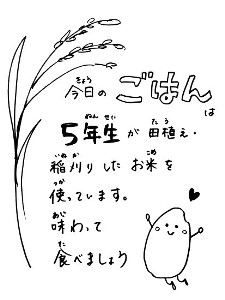 今日のごはんは
5年生が田植え・
稲刈りしたお米を
使っています。
味わって
食べましょう